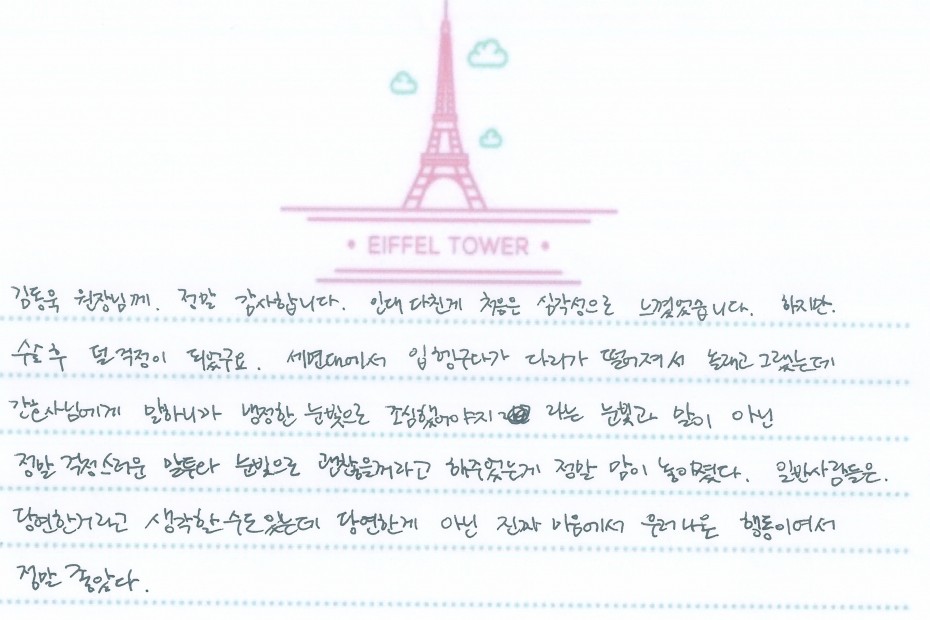 EIFFEL TOWER
김동욱 원장님께. 정말 감사합니다. 인대 다친게 처음은 심각성으로 느꼈었습니다. 하지만.
수술후 덜 걱정이 되었구요. 세면대에서 입헹구다가 다리가 떨어져서 놀래고 그랬는데
간호사님에게 말하니까 냉정한 눈빛으로 조심했어야지 라는 눈빛과 말이 아닌
정말 걱정스러운 말투와 눈빛으로 괜찮을꺼라고 해주었는게 정말 맘이 놓아졌다. 일반사람들은.
당연한거라고 생각할수도있는데 당연한게 아닌 진짜 마음에서 우러나온 행동이여서
정말 좋았다.